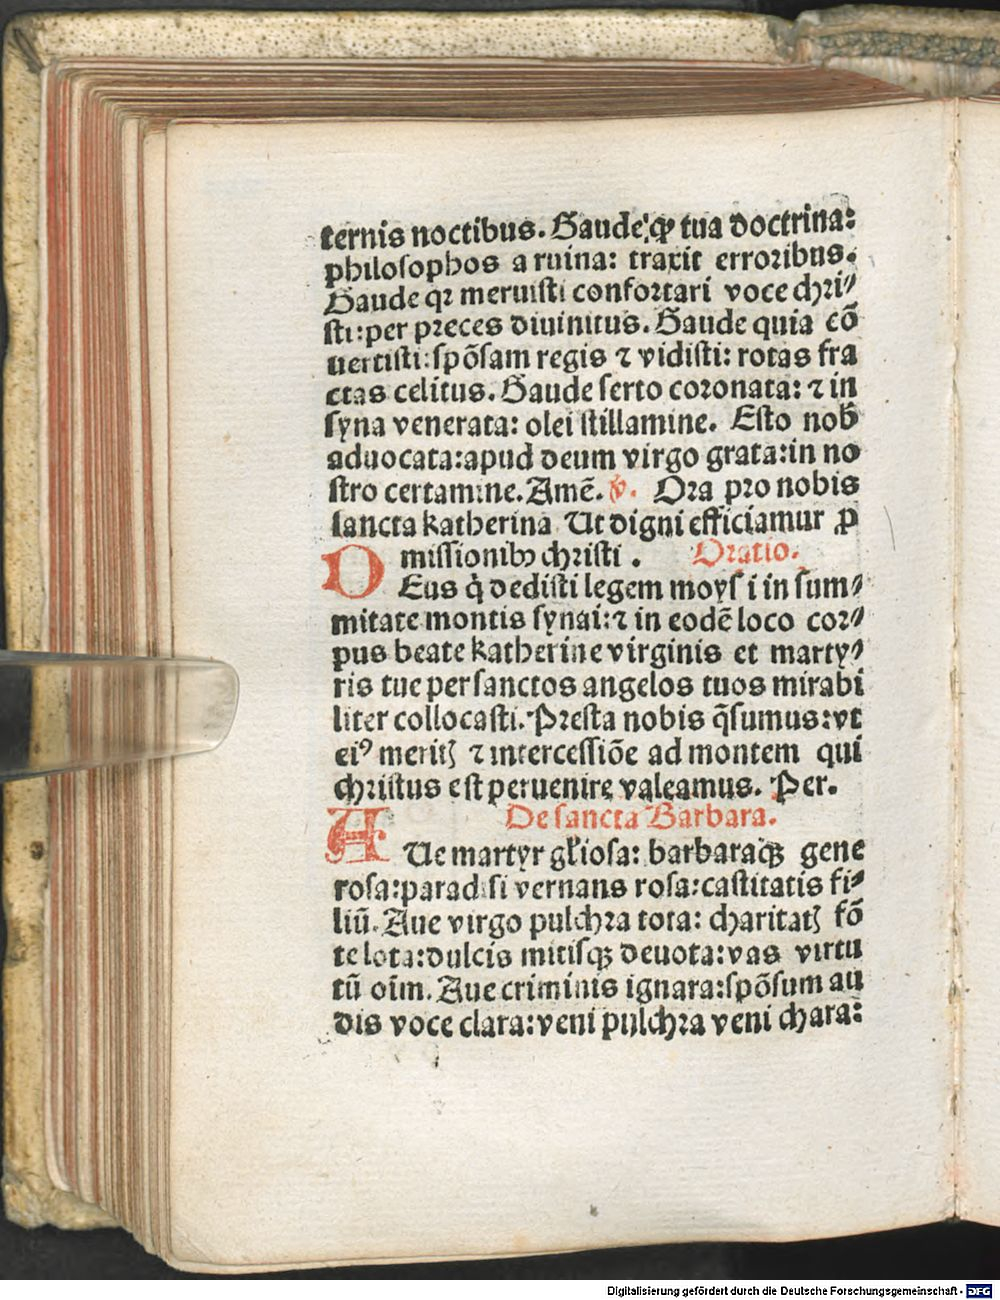 ternis noctibus. Gaude ꝙ tua doctrina:
philosophos a ruina: traxit erroribus.
Gaude qꝛ meruisti confortari voce chri⸗
sti: per preces diuinitus. Gaude quia cō
uertisti: spōsam regis ⁊ vidisti: rotas fra
ctas celitus. Gaude serto coronata: ⁊ in
syna venerata: olei stillamine. Esto nob̄
aduocata: apud deum virgo grata: in no
stro certamine. Amē. ℣. Ora pro nobis
sancta katherina Ut digni efficiamur ꝓ
missionibꝰ christi. Oratio.
DEus q̇ dedisti legem moysi in sum⸗
mitate montis synai: ⁊ in eodē loco cor⸗
pus beate katherine virginis et marty⸗
ris tue per sanctos angelos tuos mirabi
liter collocasti. Presta nobis q̄sumus: vt
eiꝰ meritꝭ ⁊ intercessiōe ad montem qui
christus est peruenire valeamus. Per.
De sancta Barbara.
AUe martyr gl̄iosa: barbaraqꝫ gene
rosa: paradisi vernans rosa: castitatis fi⸗
liū. Aue virgo pulchra tota: charitatꝭ fō
te lota: dulcis mitisqꝫ deuota: vas virtu
tū oīm. Aue criminis ignara: spōsum au
dis voce clara: veni pulchra veni chara:
Digitalisierung gefördert durch die Deutsche Forschungsgemeinschaft - DFG